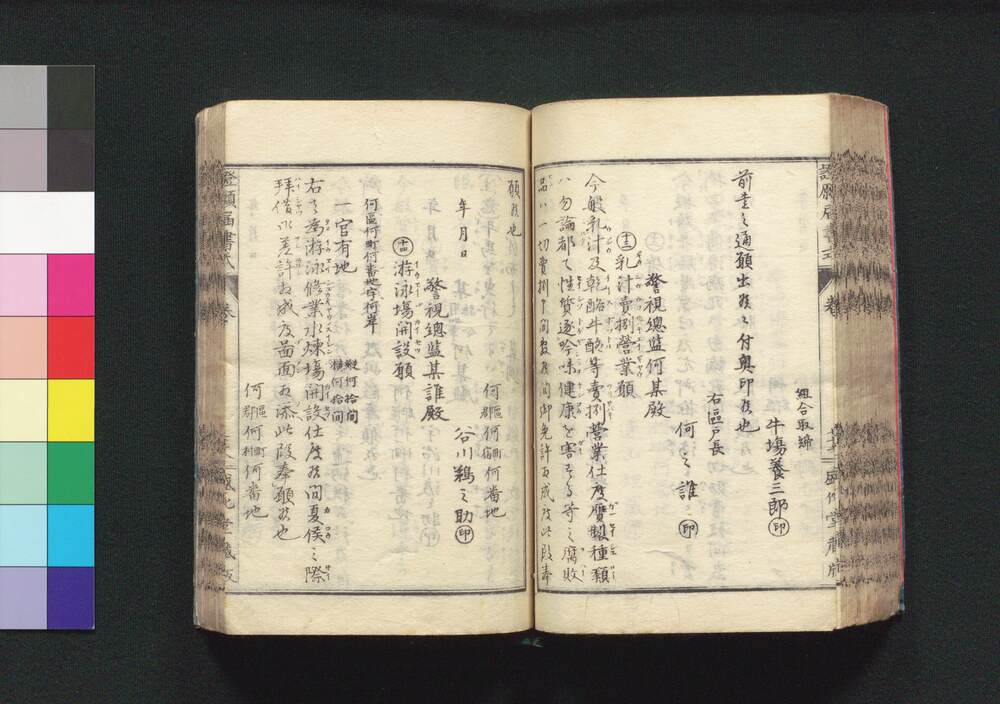 組合取締
牛塲養三郎㊞
前書之通願出候ニ付奥印候也
右區戸長
何之誰㊞
警視總監何某殿
㊂乳汁賣捌營業願
今般乳汁及乾酪牛酪等賣捌營業仕度贋製種類
ハ勿論都て性質逐吟味健康を害する等之腐敗
品ハ一切賣捌申間敷候間御免許被成度此段奉
願候也
何 區郡 何 町宿 何番地
年月日
谷川鵜之助㊞
警視總監某誰殿
游泳塲開設願
何區何町何番地字何岸
一官有地
縱何拾間
横何拾間
右者為游泳修業水煉塲開設仕度候間夏候之際
拜借御差許相成度啚面相添此段奉願候也
何 區郡 何 町村 何番地